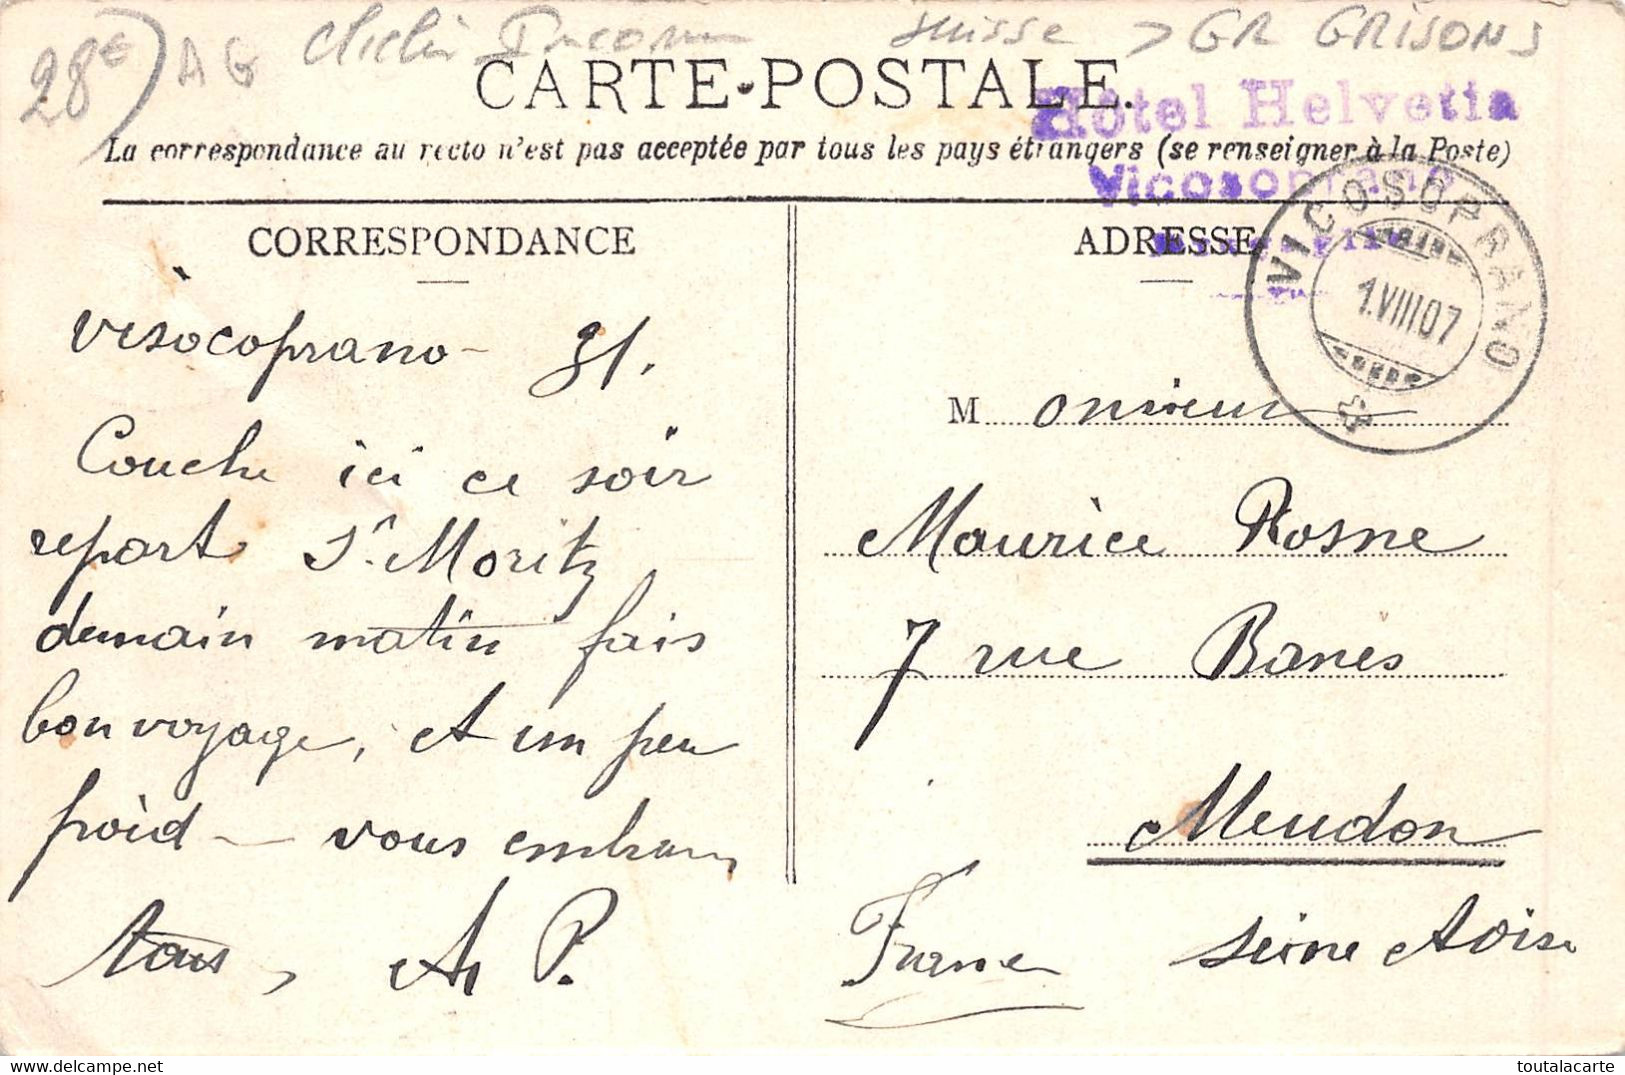 28€ AG cliché Inconnu suisse > GR GRISONS
CARTE-POSTALE.
Hôtel Helvetia
La correspondance au recto n'est pas acceptée par tous les pays étrangers (se renseigner à la Poste)
Vicosoprano
VICOSOPRANO
1.VIII07
CORRESPONDANCE
visocoprano - 31.
Couche ici ce soir
repart St Moritz
demain matin fais
bon voyage, et un peu
froid - vous embrasse
tous, A P.
ADRESSE
Monsieur
Maurice Rosne
7 rue Banes
Meudon
Seine et Oise
France
Delcampe.net
toutalacarte